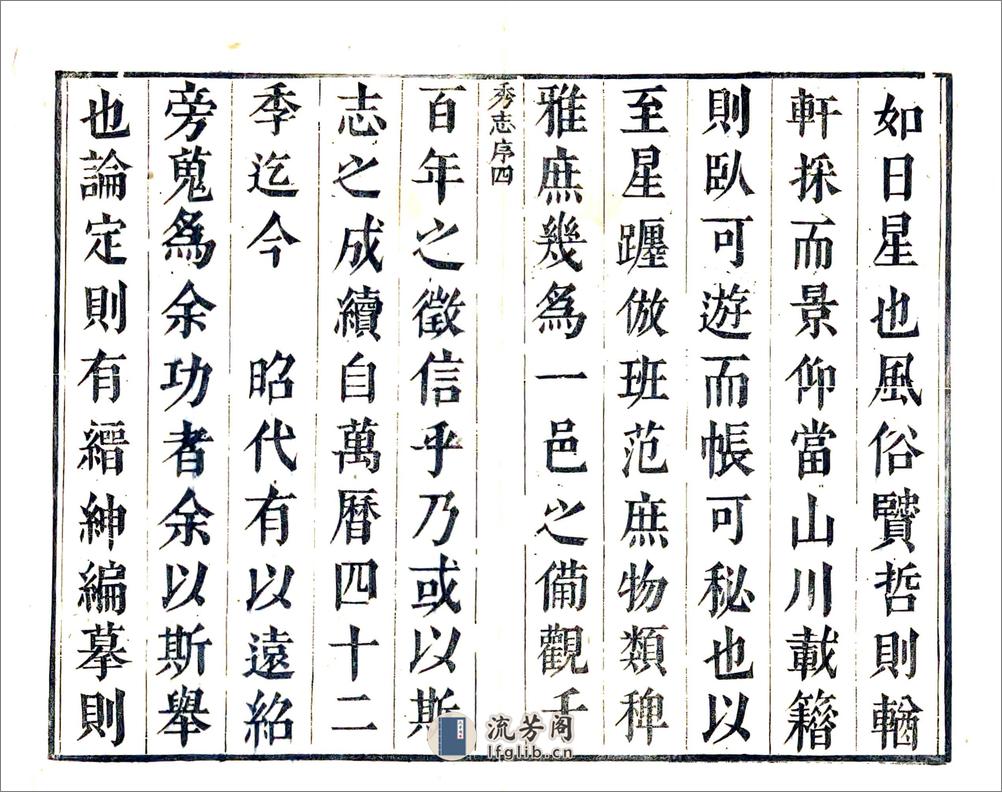 如日星也風俗賢哲則輶
軒採而景仰當山川載籍
則臥可遊而帳可秘也以
至星躔倣班范庶物類稗
雅庶幾爲一邑之備觀千
秀志序四
百年之徵信乎乃或以斯
志之成續自萬曆四十二
季迄今　昭代有以遠紹
旁蒐爲余功者余以斯舉
也論定則有縉紳編摹則
流芳阁
lfglib.cn